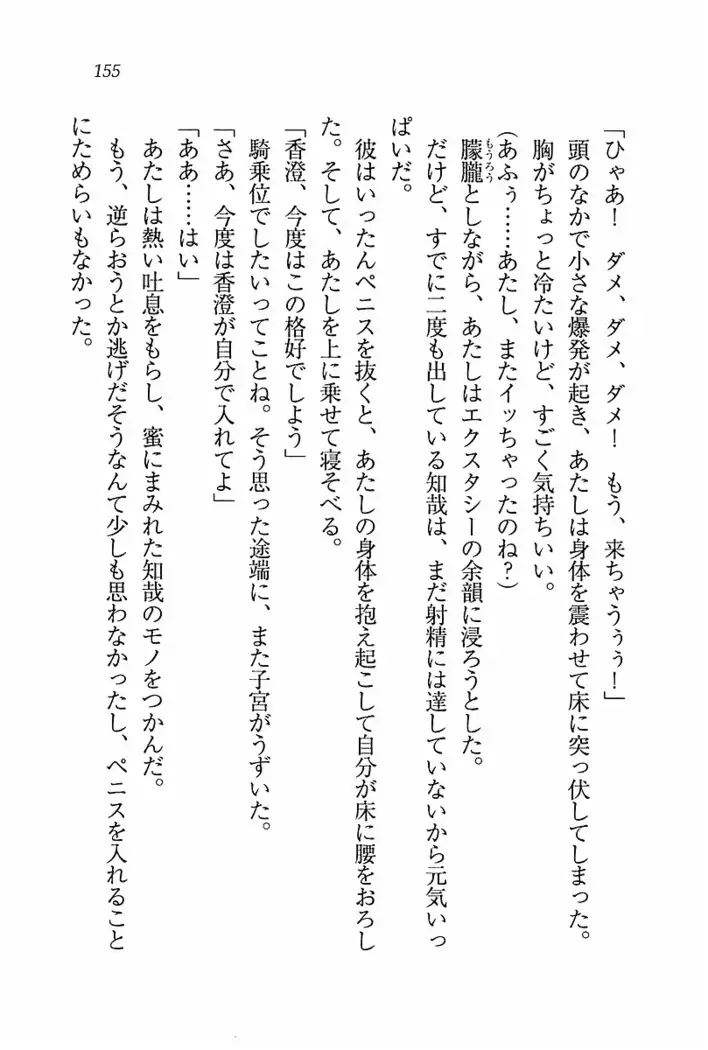 155
「ひゃあ！　ダメ、ダメ、ダメ！　もう、来ちゃうぅぅ！」
頭のなかで小さな爆発が起き、あたしは身体を震わせて床に突っ伏してしまった。
胸がちょっと冷たいけど、すごく気持ちいい。
(あふぅ……あたし、またイッちゃったのね？)
朦朧としながら、あたしはエクスタシーの余韻に浸ろうとした。
だけど、すでに二度も出している知哉は、まだ射精には達していないから元気いっ
ぱいだ。
彼はいったんペニスを抜くと、あたしの身体を抱え起こして自分が床に腰をおろし
た。そして、あたしを上に乗せて寝そべる。
「香澄、今度はこの格好でしよう」
騎乗位でしたいってことね。そう思った途端に、また子宮がうずいた。
「さあ、今度は香澄が自分で入れてよ」
「ああ……はい」
あたしは熱い吐息をもらし、蜜にまみれた知哉のモノをつかんだ。
もう、逆らおうとか逃げだそうなんて少しも思わなかったし、ペニスを入れること
にためらいもなかった。